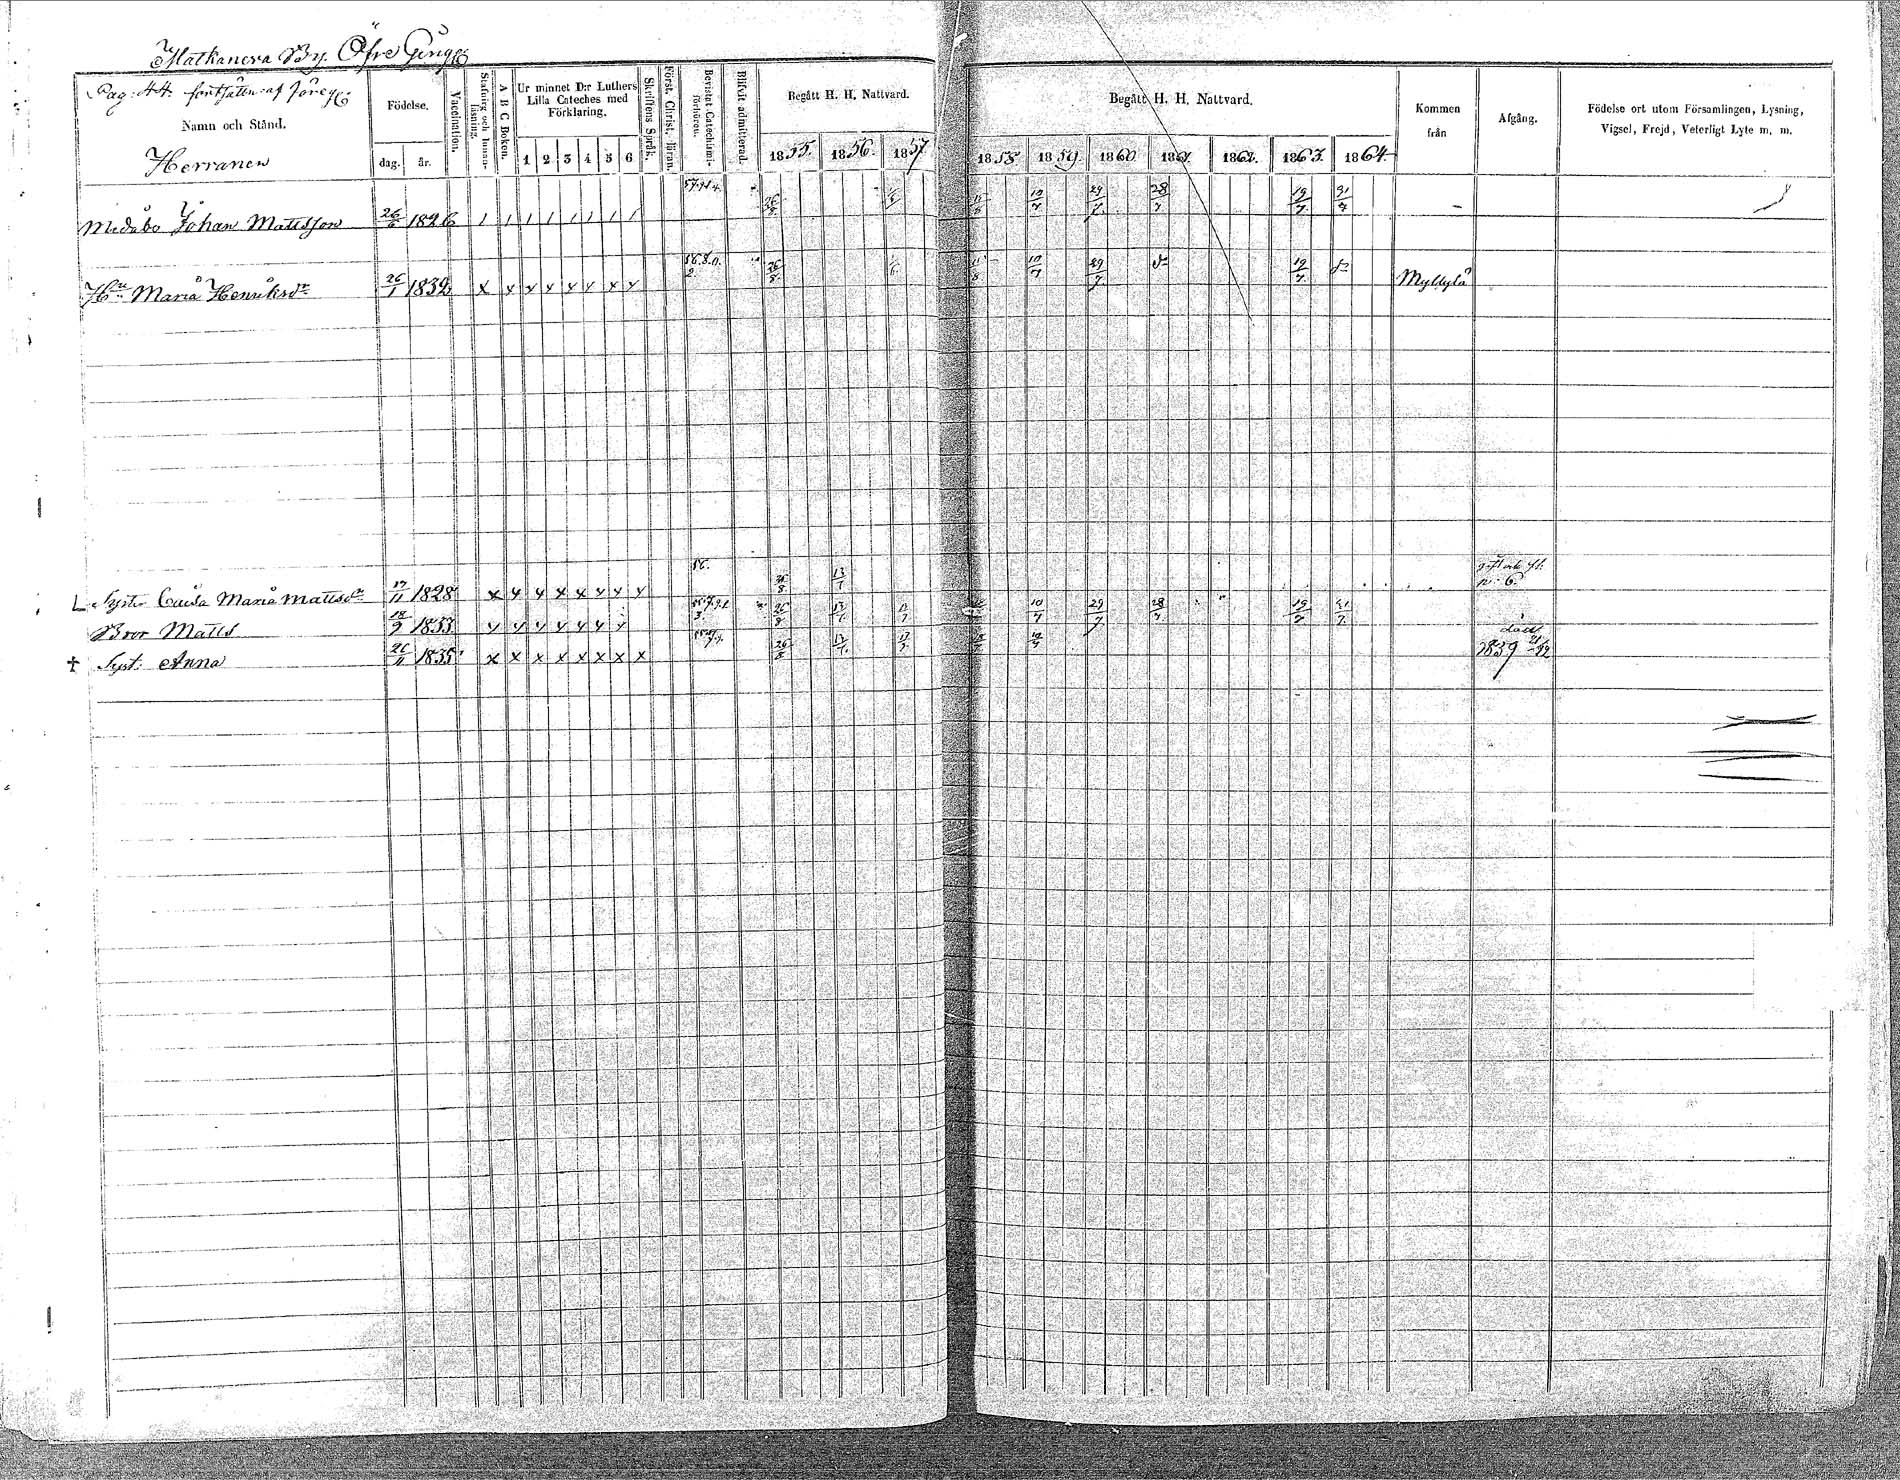 Matkaneva By. Öfre Genge
Pag: 44. fortsättn: af föreg:
Namn och Stånd.
Herranen
Födelse.
dag. år.
Vaccination.
Stafning och Innan-läsning.
A B C Boken.
Ur minnet D:r Luthers Lilla Cateches med Förklaring.
1 2 3 4 5 6
Skriftens Språk.
Först. Christ. läran.
Bevistat Catechismi-förhören.
Blifvit admitterad.
Begått H. H. Nattvard.
1855. 1856. 1857
Begått H. H. Nattvard.
1858 1859. 1860 1861. 1862. 1863. 1864.
Kommen från
Afgång.
Födelse ort utom Församlingen, Lysning, Vigsel, Frejd, Veterligt Lyte m. m.
Medåbo Johan Mattsson 26/6 1826 1 1 1 1 1 1 1 1 26/8 10/7 29/7 28/7 19/7 31/7 –
Hu Maria Henriksdr 26/1 1832 x x x x x x x x 26/8 10/7 29/7 do 19/7 do Myllylä
L Syster Caisa Maria Mattsdr 17/11 1828 x x x x x x x x 56. 26/8 13/7 n: 6
Bror Matts 18/9 1833 x x x x x x x 26/8 13/7 10/7 29/7 28/7 19/7 31/7
† Syst: Anna 26/11 1835 x x x x x x x x 26/8 13/7 10/7 död